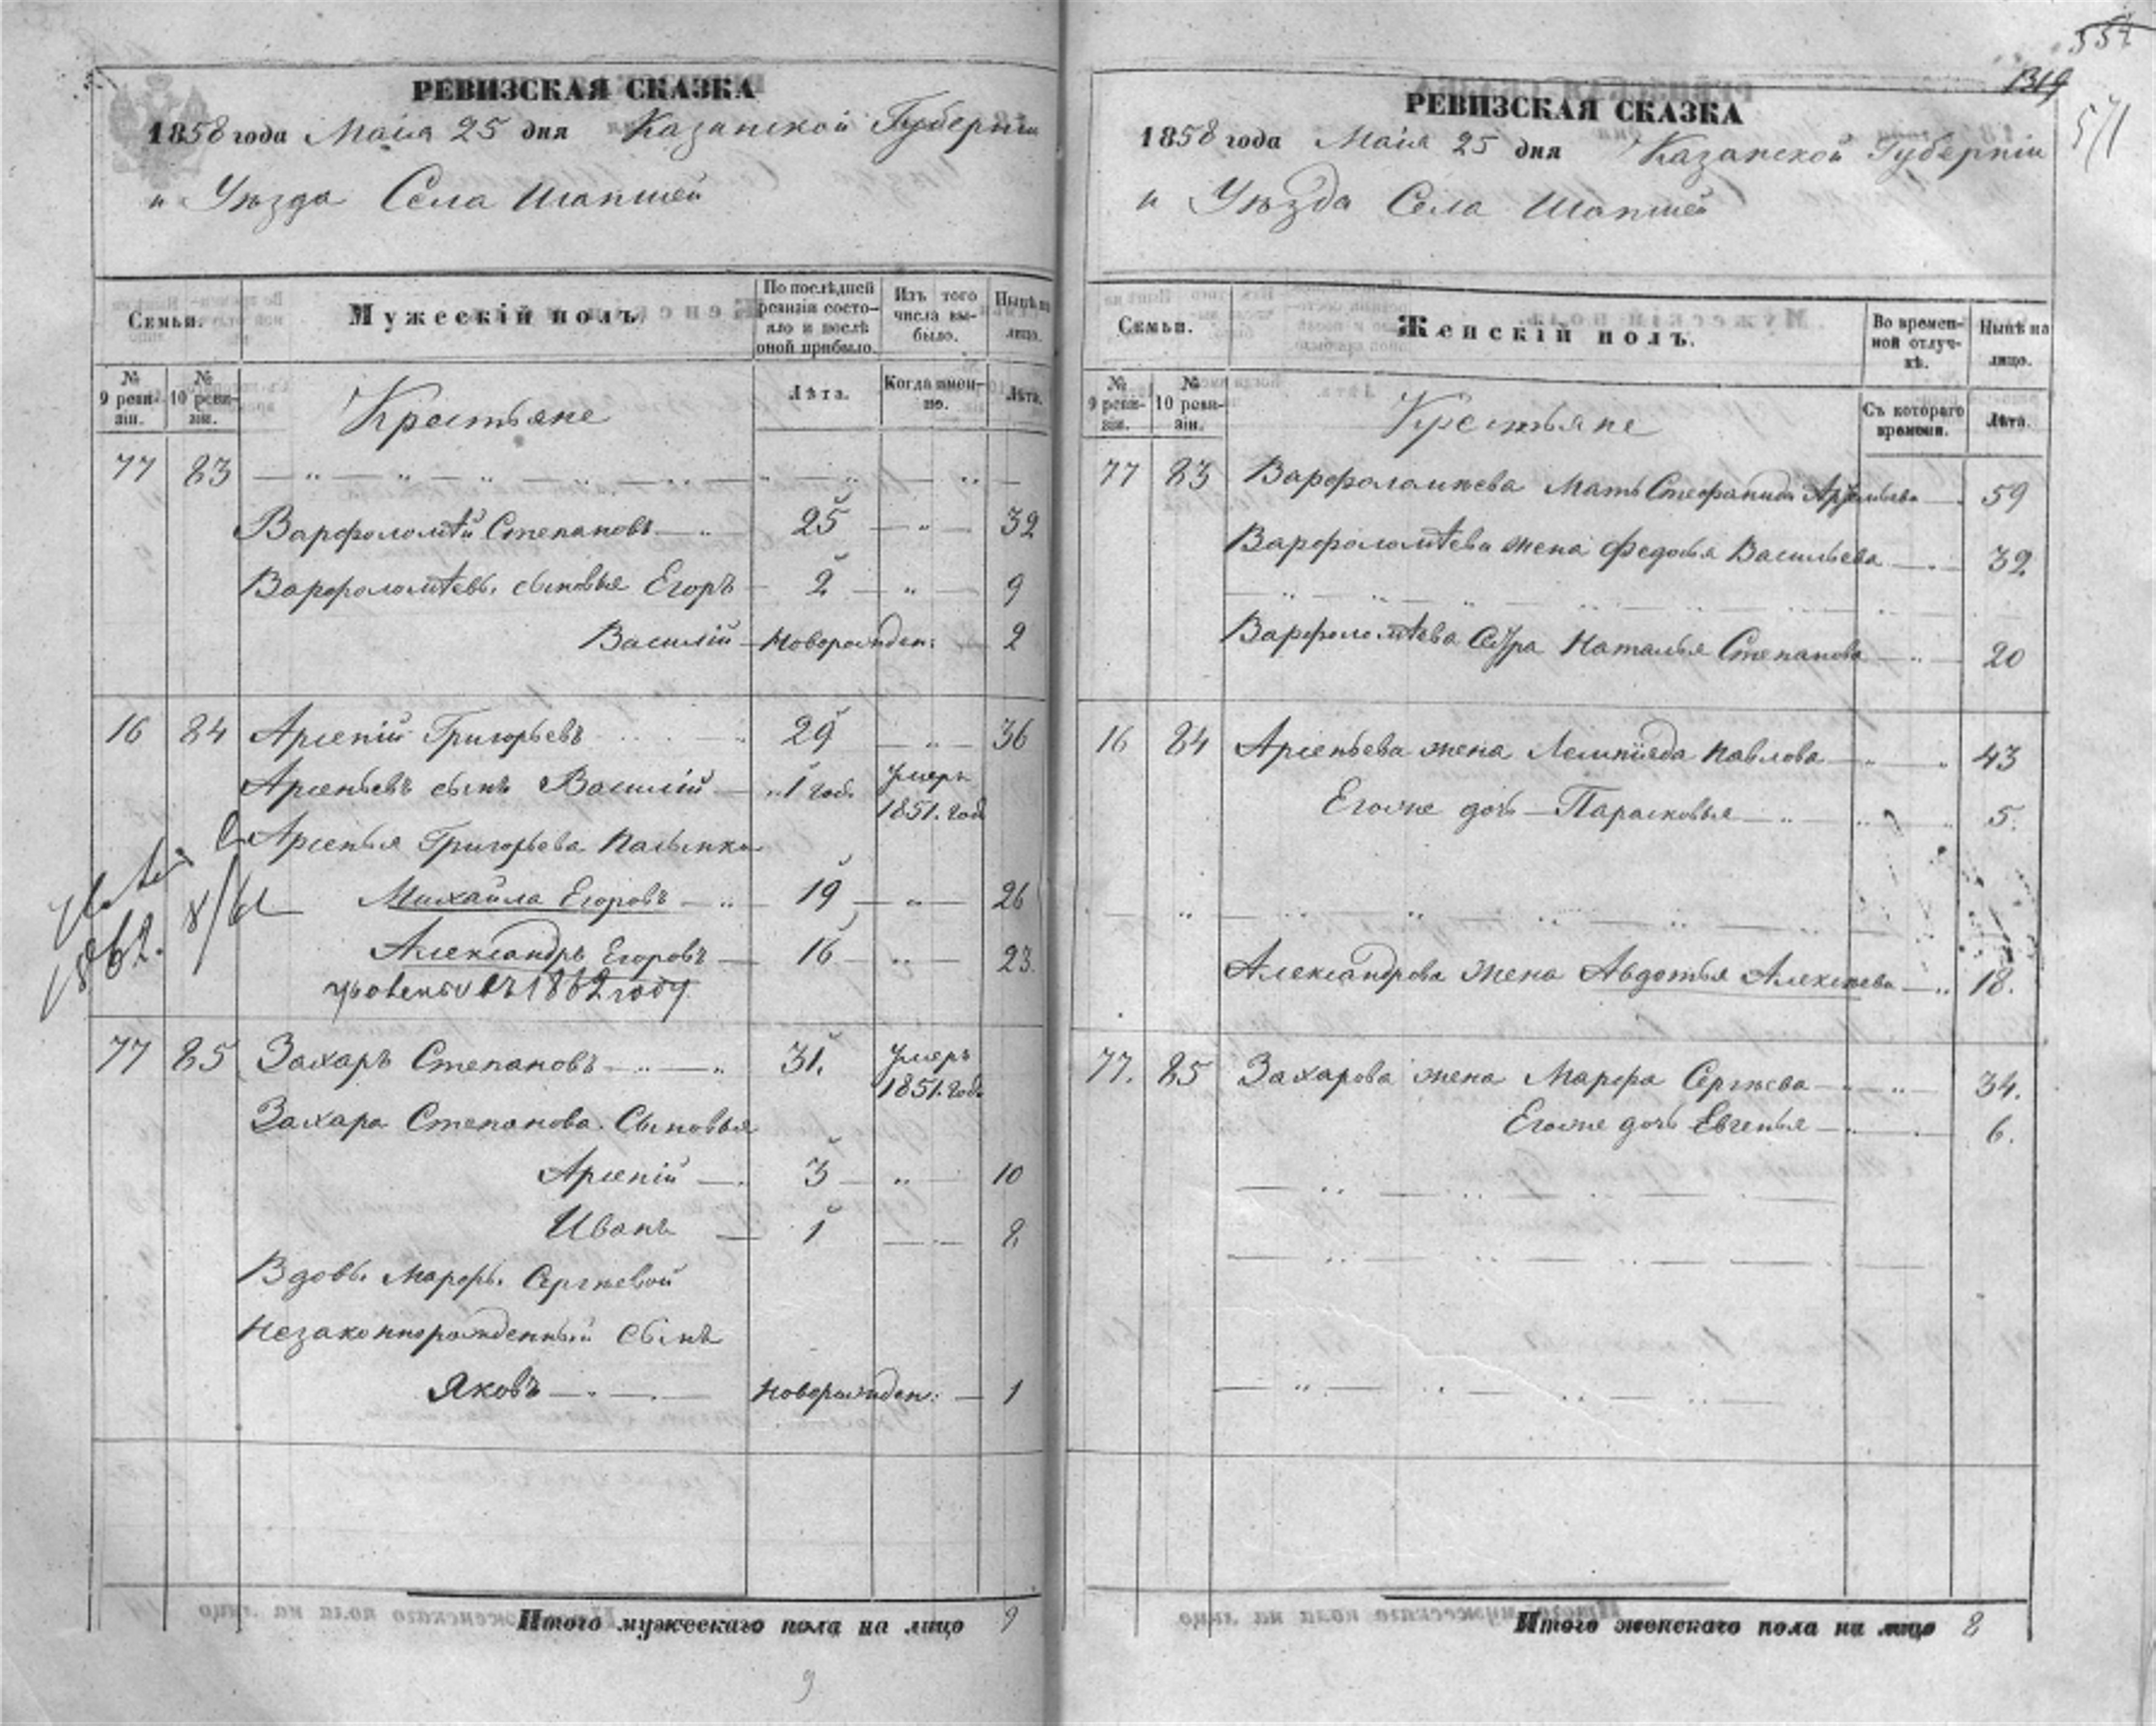 РЕВИЗСКАЯ СКАЗКА
1858 года Маія 25 дня Казанской Губерніи
и Уѣзда Села Шапшей
Семьи.
Мужескій полъ.
По послѣдней ревизіи состояло и послѣ оной прибыло.
Изъ того числа выбыло.
Нынѣ на лицо.
№ 9 ревизіи.
№ 10 ревизіи.
Крестьяне
Лѣта.
Когда именно.
Лѣта.
77 83
Варфоломѣй Степановъ 25 32
Варфоломѣевы сыновья Егоръ 2 9
Василій Новорожден: 2
16 84 Арсеній Григорьевъ 29 36
Арсеньевъ сынъ Василій 1 год. умеръ 1851. год
Арсенья Григорьева Пасынки
Михайла Егоровъ 19 26
1862.
Александръ Егоровъ 16 23
въ 1862 году
77 85 Захаръ Степановъ 31. умеръ 1851. год.
Захара Степанова Сыновья
Арсеній 3 10
Иванъ 1 8
Вдовы Марфы Сергѣевой
Незаконнорожденный сынъ
Яковъ Новорожден: 1
Итого мужескаго пола на лицо 9
9
557
571
РЕВИЗСКАЯ СКАЗКА
1858 года Маія 25 дня Казанской Губерніи
и Уѣзда Села Шапшей
Семьи.
Женскій полъ.
Во временной отлучкѣ.
Нынѣ на лицо.
№ 9 ревизіи.
№ 10 ревизіи.
Крестьяне
Съ котораго времени.
Лѣта.
77 83 Варфоломѣева Мать Стефанида 59
Варфоломѣева жена Федосья Васильева 32
Варфоломѣева Сестра Наталья Степанова 20
16 84 Арсеньева жена Павлова 43
Егоже дочь Парасковья 5.
Александрова жена Авдотья Алексѣева 18.
77. 85 Захарова жена Марфа Сергѣева 34.
Егоже дочь Евгенья 6.
Итого женскаго пола на лицо 8